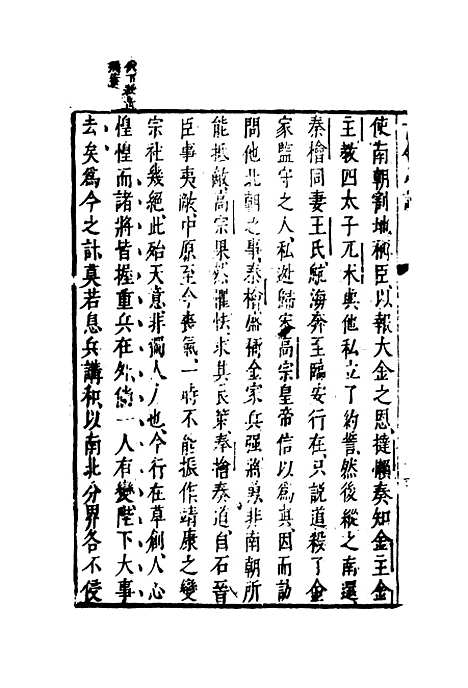 使南朝割地稱臣以報大金之恩撻懶奏知金主金
主教四太子兀朮與他私立了約誓然後縱之南還
秦檜同妻王氏航海奔至臨安行在只說道殺了金
家監守之人私逃歸宋高宗皇帝信以爲真因而訪
問他北朝之事秦檜盛稱金家兵强將勇非南朝所
能抵敵高宗果然懼怯求其良策秦檜奏道自石晉
臣事夷敵中原至今喪氣一時不能振作靖康之變
宗社幾絕此殆天意非獨人力也今行在草創人心
惶惶而諸將皆握重兵在外倘一人有變陛下大事
去矣爲今之計莫若息兵講和以南北分界各不侵